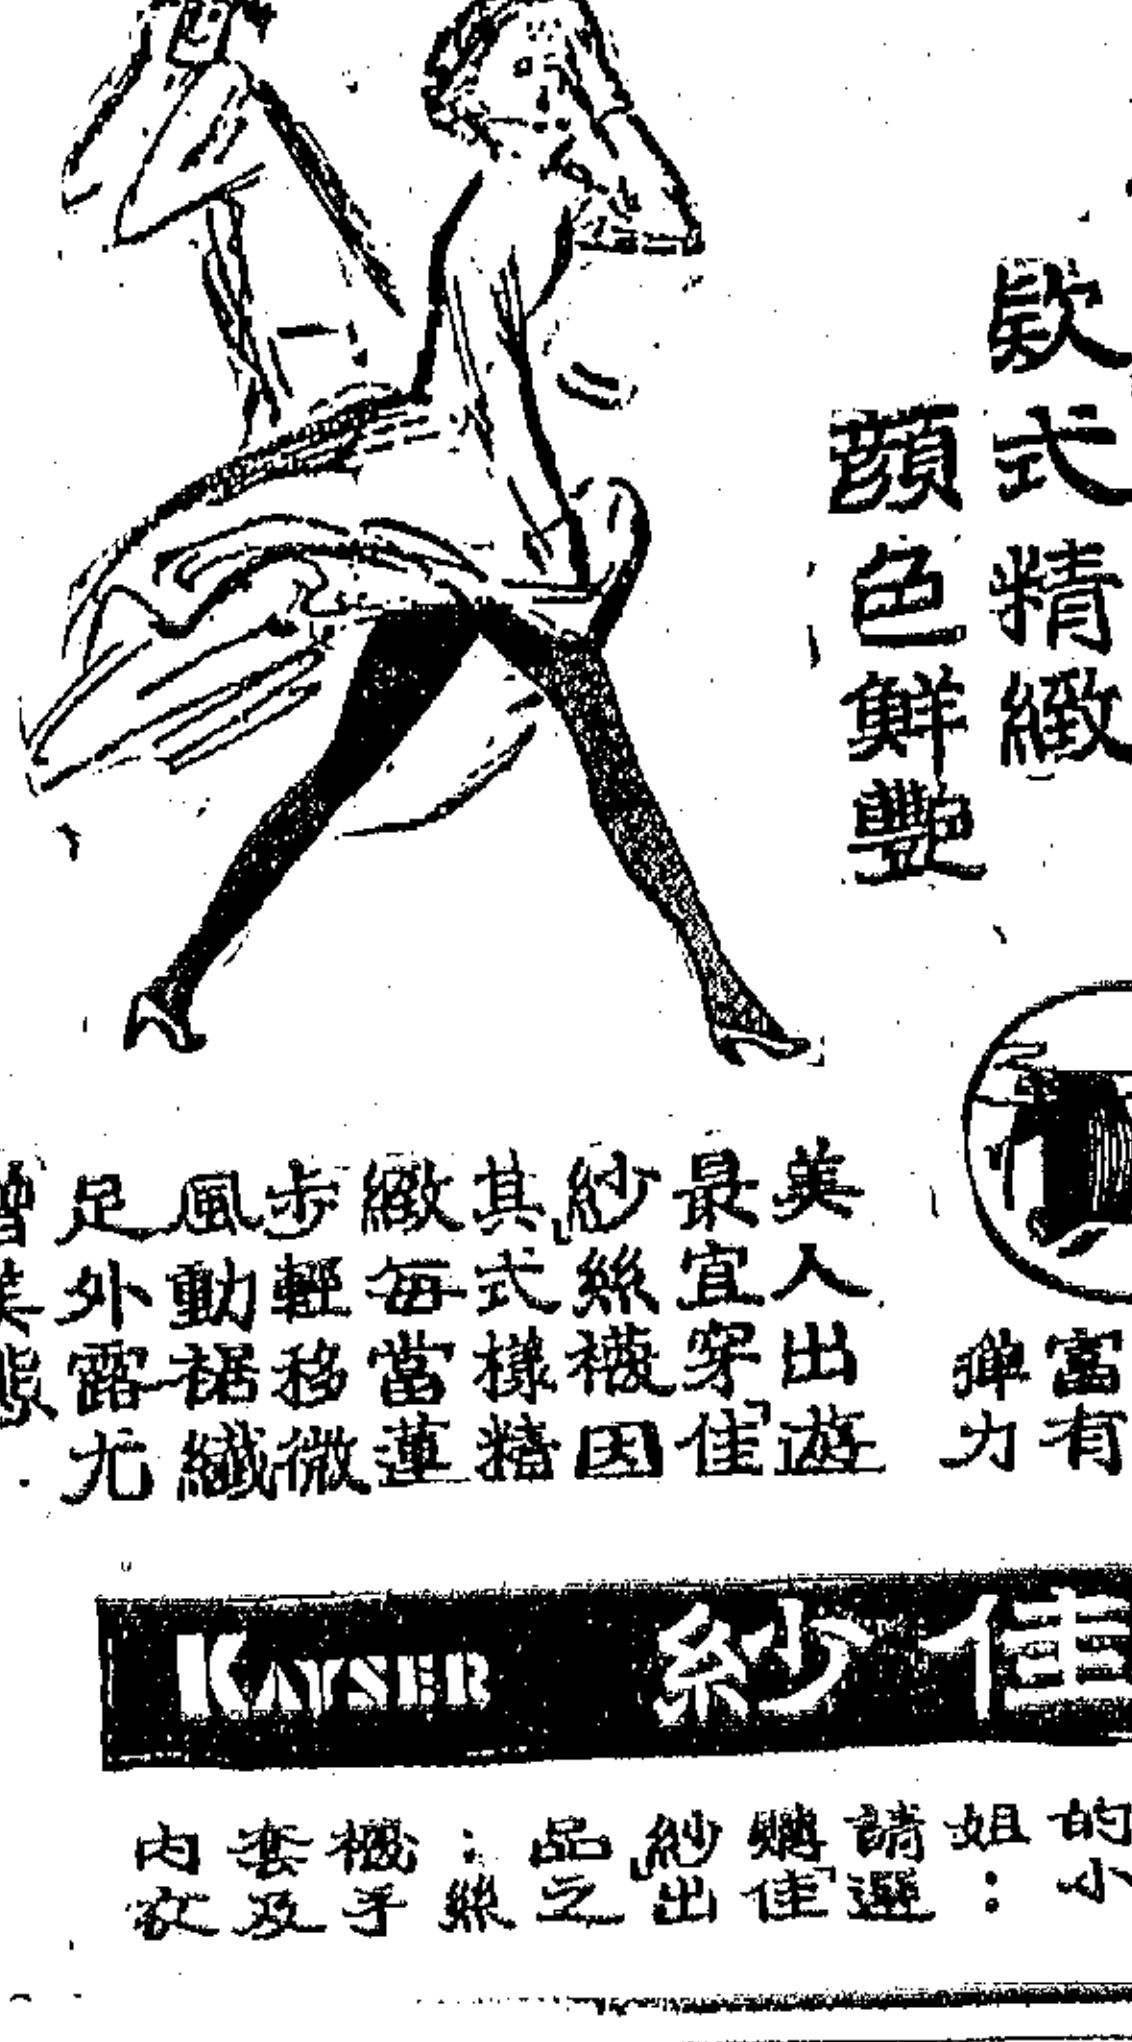 款式精緻
顏色鮮艷
富有
彈力
美人出遊
最宜穿「佳
紗」絲襪因
其式樣精
緻每當蓮
步輕移微
風動裙纖
足外露尤
佳紗
KAYSER
的小
姐：
請選
購「佳
紗」出
品之
：絲
襪手
套及
內衣